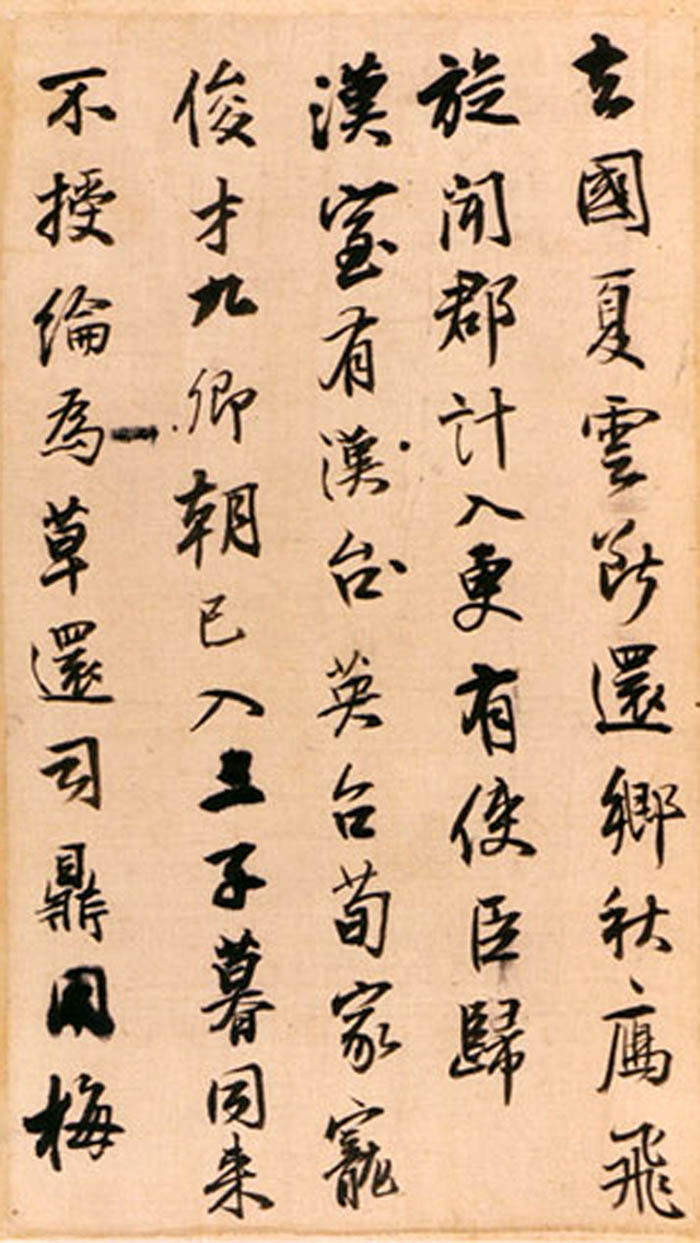 去國夏雲斷還鄉秋雁飛
旋聞郡計入更有使臣歸
漢室有漢台英台荀家寵
俊才九卿朝已入三子暮同来
不授綸為草還司鼎用梅